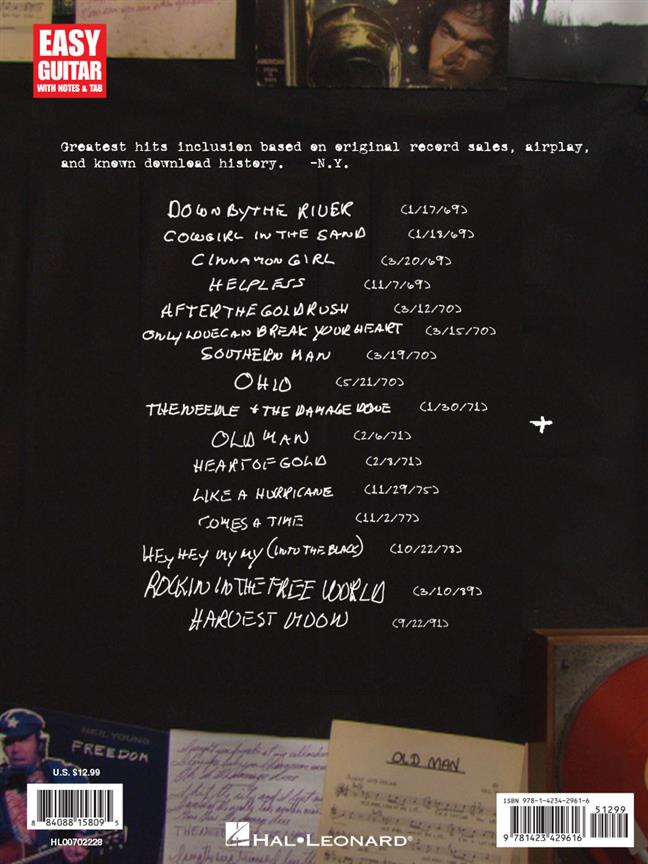 EASY
GUITAR
WITH NOTES & TAB
Greatest hits inclusion based on original record sales, airplay,
and known download history. -N.Y.
DOWN BY THE RIVER (1/17/69)
COWGIRL IN THE SAND (1/18/69)
CINNAMON GIRL (3/20/69)
HELPLESS (11/7/69)
AFTER THE GOLDRUSH (3/12/70)
ONLY LOVE CAN BREAK YOUR HEART (3/15/70)
SOUTHERN MAN (3/19/70)
OHIO (5/21/70)
THE NEEDLE + THE DAMAGE DONE (1/30/71)
OLD MAN (2/6/71)
HEART OF GOLD (2/8/71)
LIKE A HURRICANE (11/29/75)
COMES A TIME (11/2/77)
HEY HEY MY MY (INTO THE BLACK) (10/22/78)
ROCKIN IN THE FREE WORLD (3/10/89)
HARVEST MOON (9/22/91)
NEIL YOUNG
FREEDOM
OLD MAN
U.S. $12.99
8 84088 15809 5
HL00702228
HAL•LEONARD®
ISBN 978-1-4234-2961-6
51299
9 781423 429616